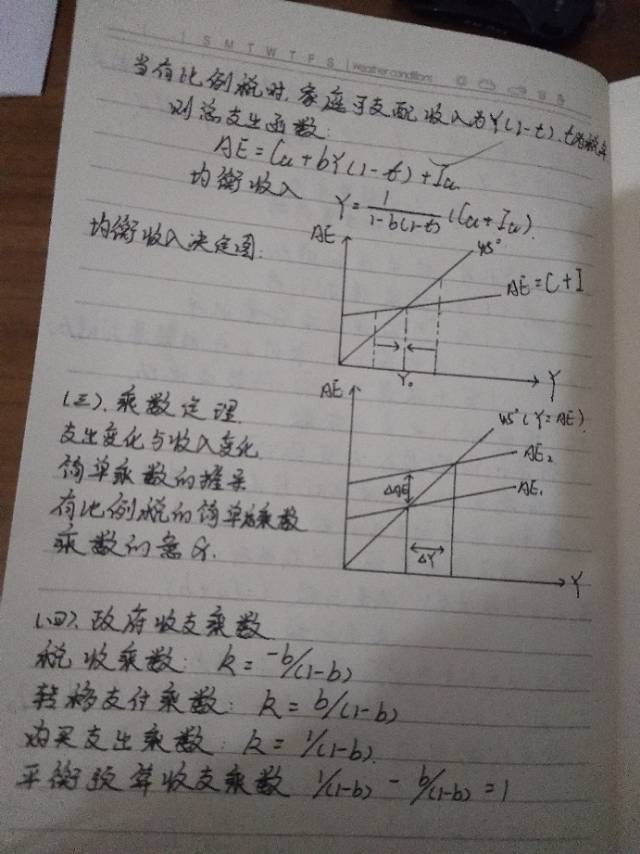 S M T W T F S weather conditions
当有比例税时,家庭可支配收入为Y(1-t),t为税率
则总支出函数:
AE=Ca+bY(1-t)+Ia
均衡收入 Y=1/1-b(1-t) (Ca+Ia).
均衡收入决定图:
AE
45°
AE=C+I
Y₀
Y
(三).乘数定理
支出变化与收入变化
简单乘数的推导
有比例税的简单乘数
乘数的意义.
AE
45°(Y=AE)
AE₂
AE₁
ΔAE
ΔY
Y
(四).政府收支乘数
税收乘数: k=-b/(1-b)
转移支付乘数: k=b/(1-b)
购买支出乘数: k=1/(1-b).
平衡预算收支乘数 1/(1-b) - b/(1-b) =1